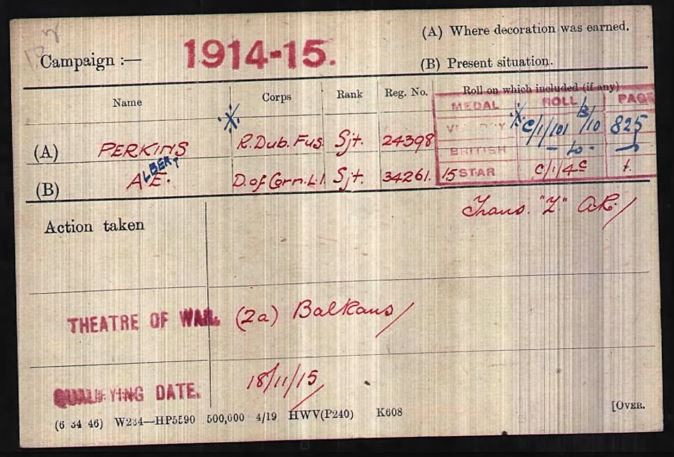 (A) Where decoration was earned.
Campaign :— 1914-15.
(B) Present situation.
Name Corps Rank Reg. No. Roll on which included (if any)
MEDAL ROLL PAGE
(A) PERKINS R. Dub. Fus. Sjt. 24398 VICTORY C/1/101 B/10 825
BRITISH - do -
(B) A. ALBERT E. D. of Corn. L.I. Sjt. 34261. 15 STAR C/1/4C 1.
Action taken
Trans. "Z" A.R./
THEATRE OF WAR. (2a) Balkans/
QUALIFYING DATE. 18/11/15
(6 34 46) W234—HP5590 500,000 4/19 HWV(P240) K608 [OVER.